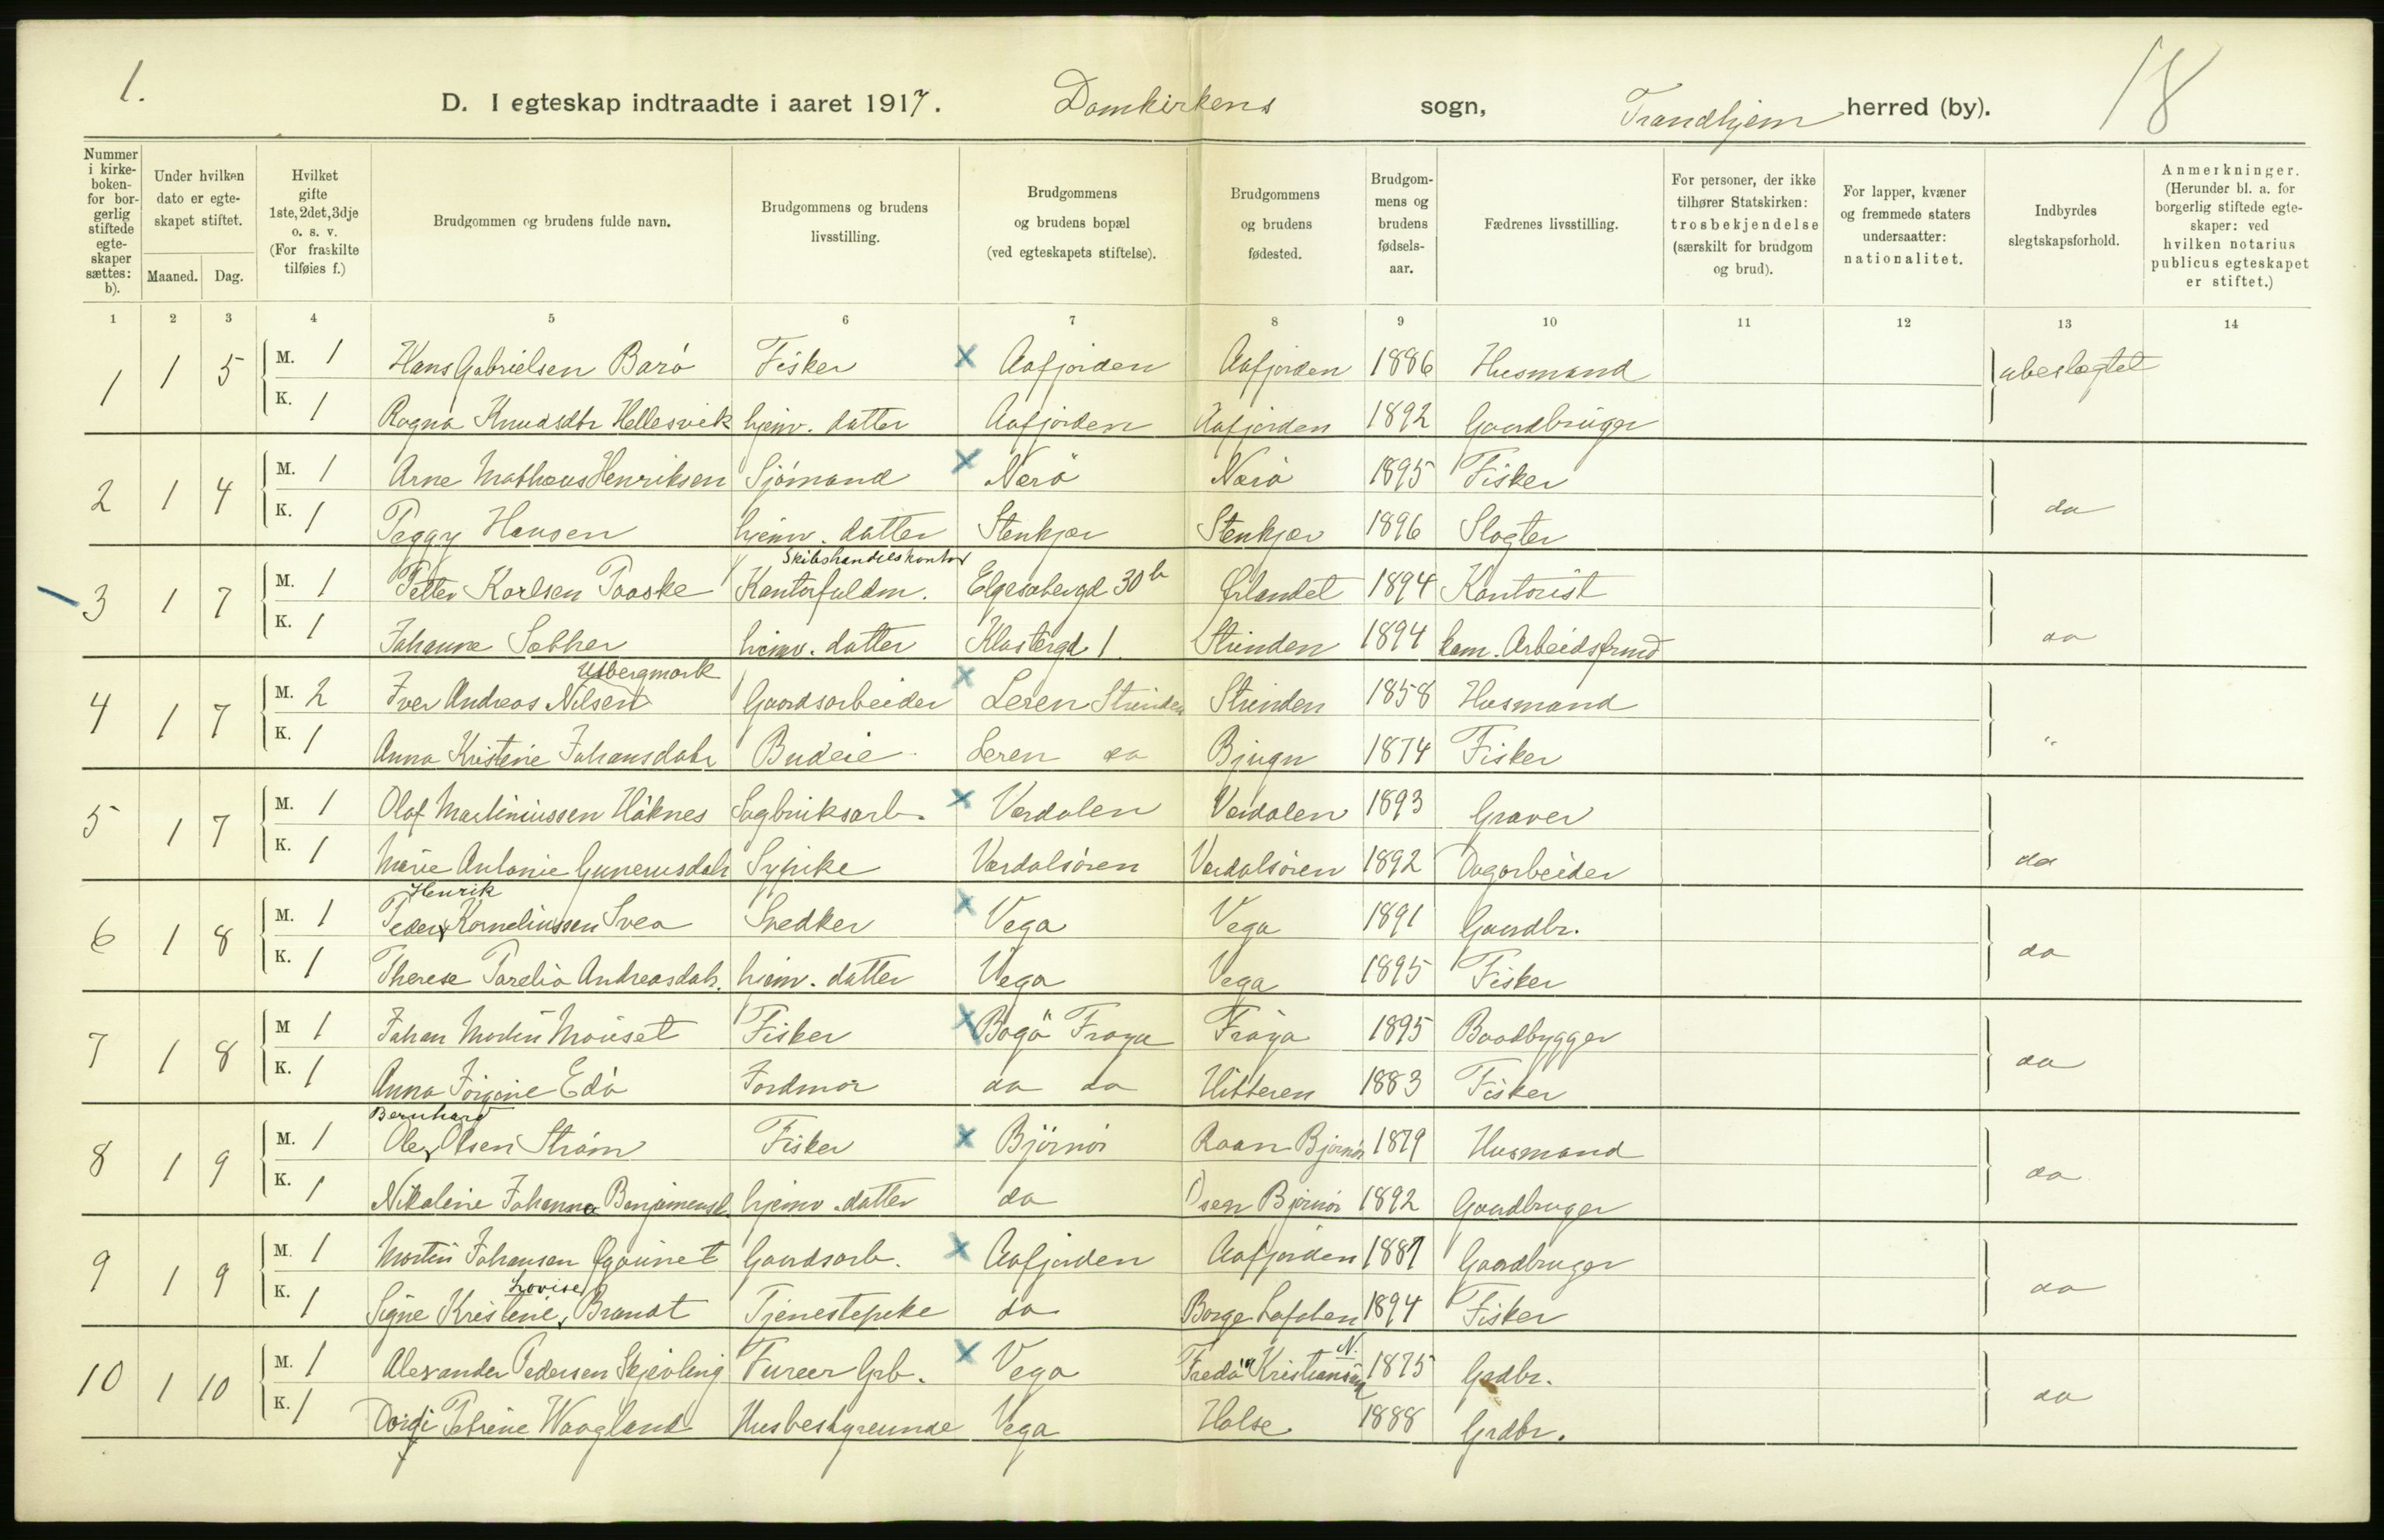 1.
D. I egteskap indtraadte i aaret 1917. Domkirkens sogn, Trondhjem herred (by). 18
Nummer i kirke-boken- for bor-gerlig stiftede egte-skaper sættes: b).
Under hvilken dato er egte-skapet stiftet.
Maaned. Dag.
Hvilket gifte 1ste, 2det, 3dje o. s. v. (For fraskilte tilføies f.)
Brudgommen og brudens fulde navn.
Brudgommens og brudens livsstilling.
Brudgommens og brudens bopæl (ved egteskapets stiftelse).
Brudgommens og brudens fødested.
Brudgom-mens og brudens fødsels-aar.
Fædrenes livsstilling.
For personer, der ikke tilhører Statskirken: trosbekjendelse (særskilt for brudgom og brud).
For lapper, kvæner og fremmede staters undersaatter: nationalitet.
Indbyrdes slegtskapsforhold.
Anmerkninger. (Herunder bl. a. for borgerlig stiftede egte-skaper: ved hvilken notarius publicus egteskapet er stiftet.)
1 2 3 4 5 6 7 8 9 10 11 12 13 14
1 1 5 M. 1 Hans Gabrielsen Barö Fisker x Aafjorden Aafjorden 1886 Husmand ubeslægtet
K. 1 Ragna Knudsdtr Hellesvik hjemv. datter Aafjorden Aafjorden 1892 Gaardbruger
2 1 4 M. 1 Arne Mathæus Henriksen Sjömand x Nærö Nærö 1895 Fisker do
K. 1 Peggy Hansen hjemv. datter Stenkjær Stenkjær 1896 Slagter
Skibshandelskontor
3 1 7 M. 1 Petter Karlsen Paaske Kontorfuldm. Elgesæbergd 30 b Ørlandet 1894 Kontorist do
K. 1 Johanne Sæther hjemv. datter Klostergd. 1 Strinden 1894 kom. Arbeidsfmd
Usbergmark
4 1 7 M. 2 Iver Andreas Nilsen Gaardsarbeider x Leren Strinden Strinden 1858 Husmand "
K. 1 Anna Kristine Johansdatr Budeie Leren do Bjugn 1874 Fisker
5 1 7 M. 1 Olaf Martiniussen Håknes Sagbruksarb. x Værdalen Værdalen 1893 Graver do
K. 1 Marie Antonie Gunerusdatr Sypike Værdalsören Værdalsören 1892 Dagarbeider
Henrik
6 1 8 M. 1 Peder Korneliussen Svea Snedker x Vega Vega 1891 Gaardbr. do
K. 1 Therese Parelia Andreasdatr. hjemv. datter Vega Vega 1895 Fisker
7 1 8 M 1 Johan Martin Mauset Fisker x Bogö Fröya Fröya 1895 Baadbygger do
K. 1 Anna Jörgine Edö Jordmor do do Hitteren 1883 Fisker
Bernhard
8 1 9 M. 1 Ole Olsen Ström Fisker x Björnör Roan Björnör 1879 Husmand do
K. 1 Nikoline Johanna Benjaminsd. hjemv. datter do Osen Björnör 1892 Gaardbruger
9 1 9 M. 1 Morten Johansen Gaardsarb. x Aafjorden Aafjorden 1887 Gaardbruger do
Lovise
K. 1 Signe Kristine Brandt Tjenestepike do Borge Lofoten 1894 Fisker
10 1 10 M. 1 Alexander Pedersen Skjevling Fureer Grb. x Vega Fredö Kristiansun N. 1875 Grdbr. do
K. 1 Dordi Petrine Waagland Husbestyrerinde Vega Halse 1888 Grdbr.